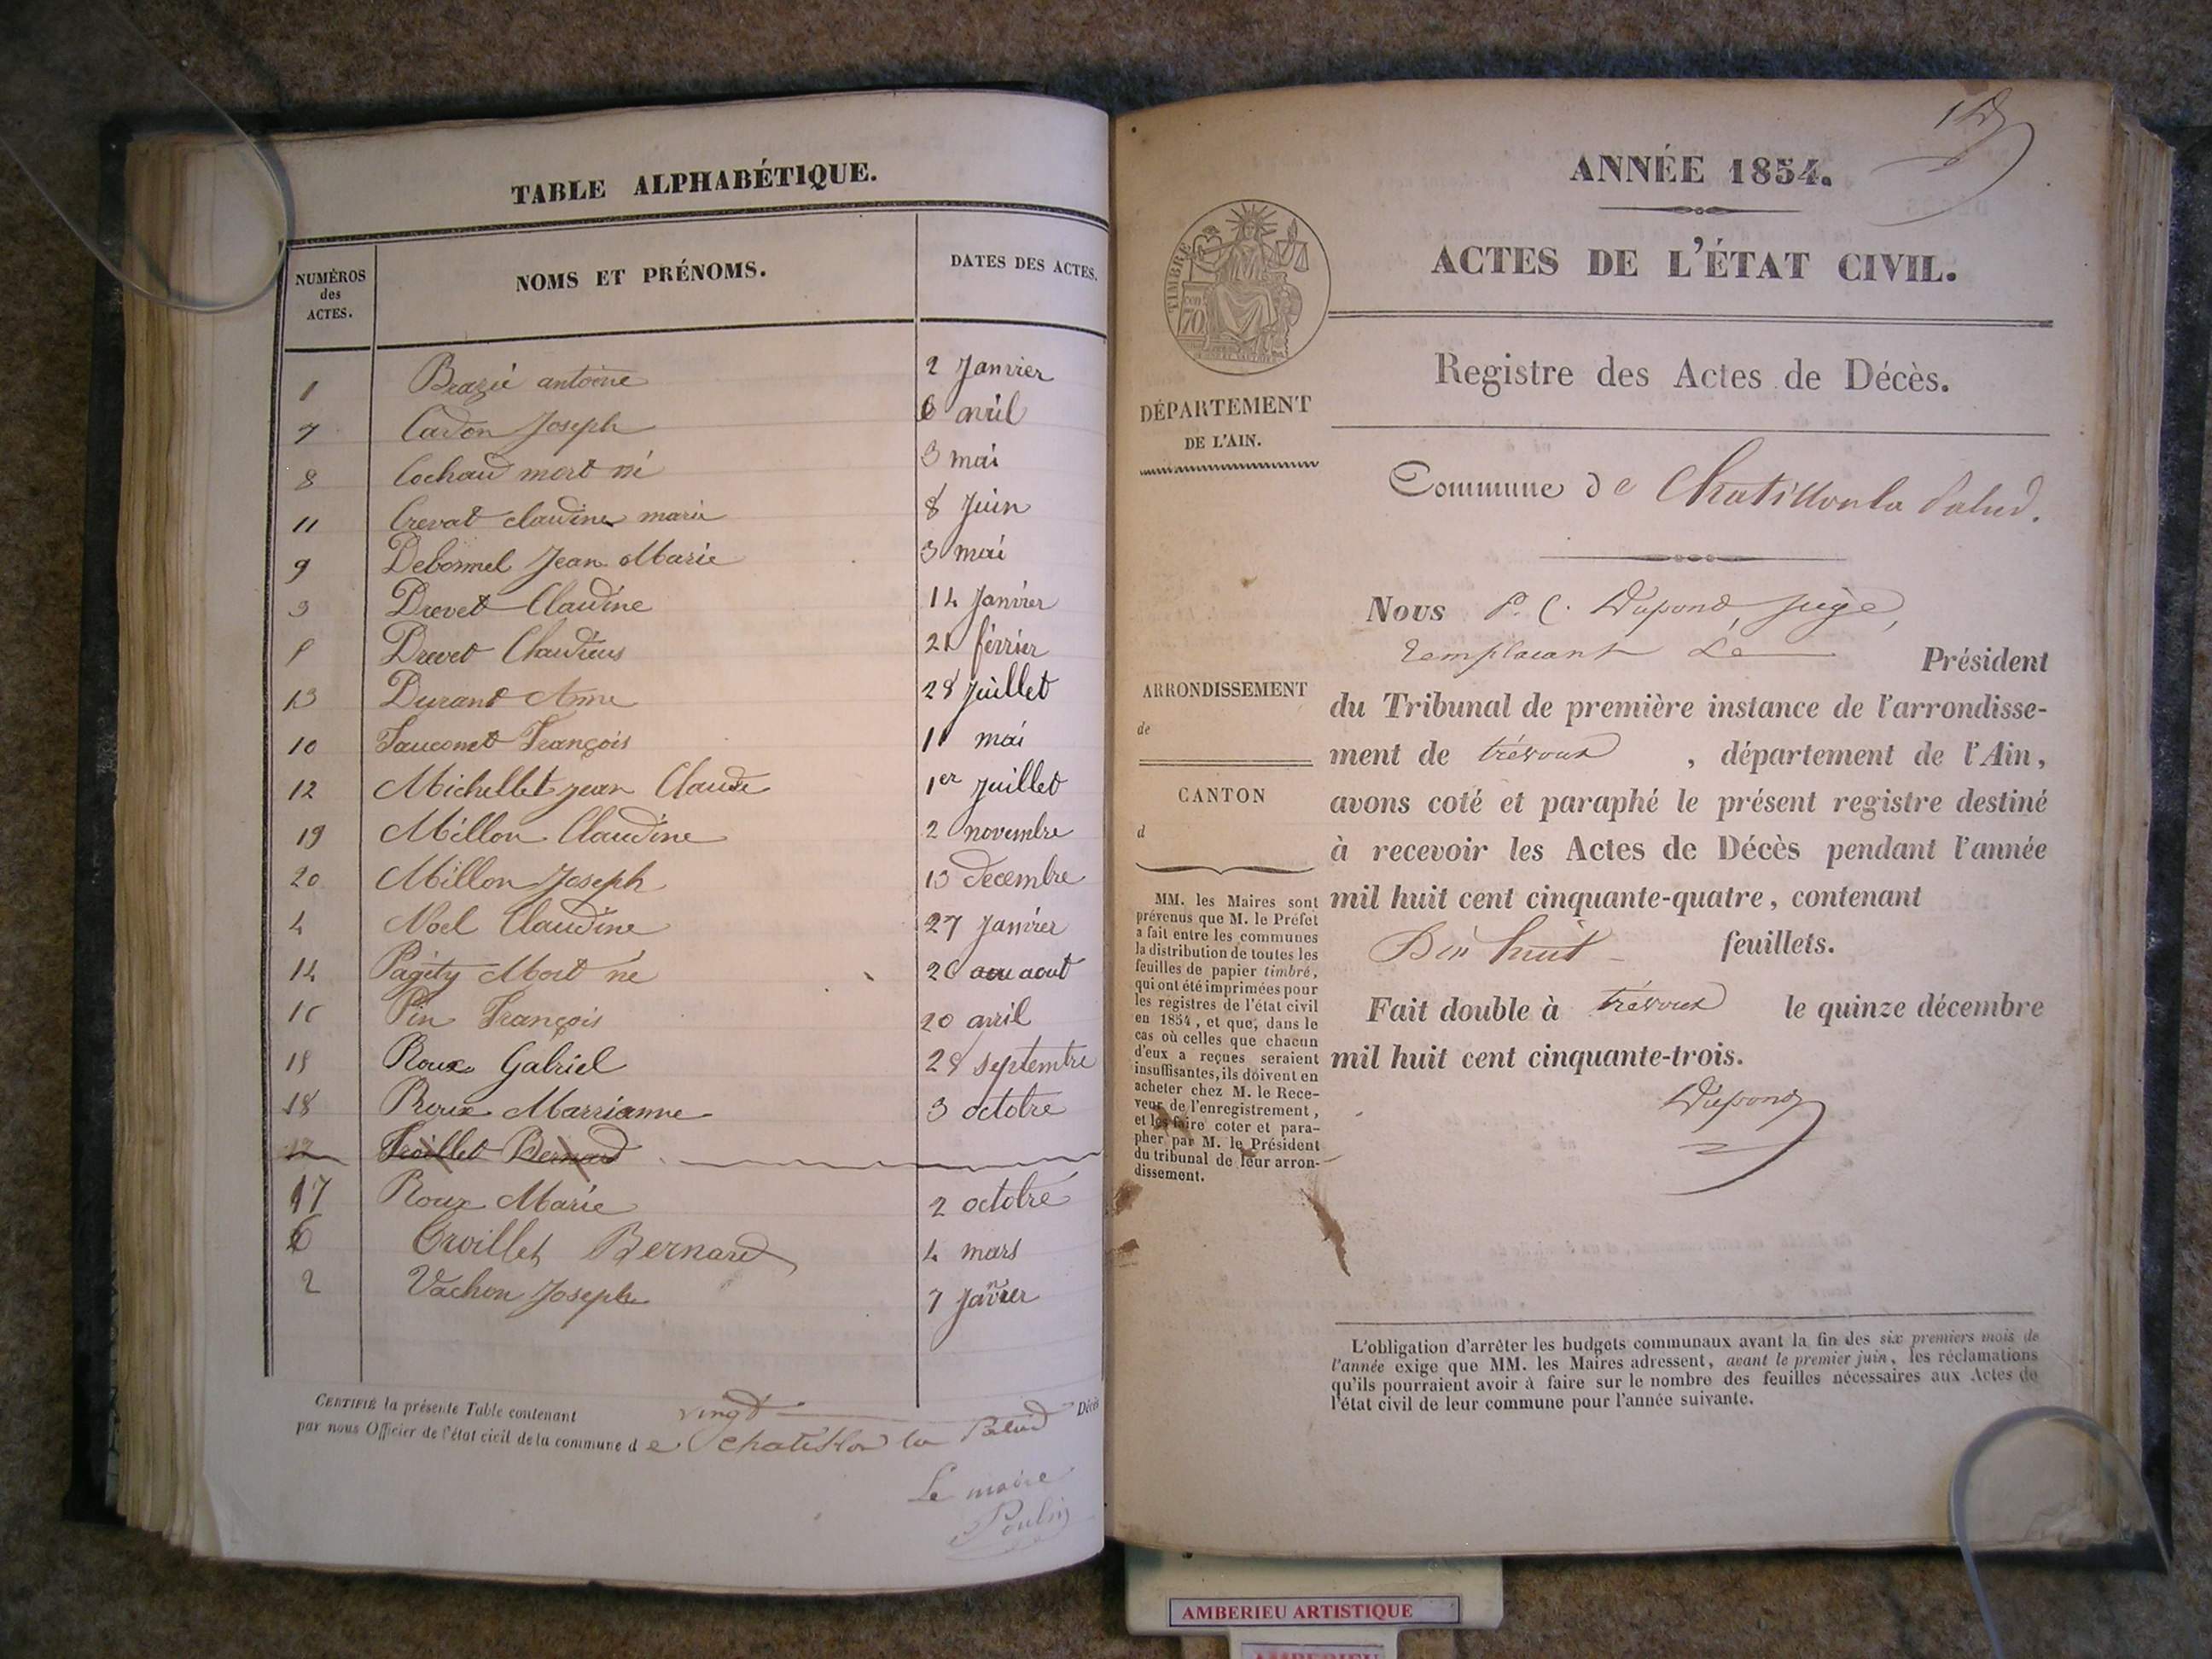 TABLE ALPHABÉTIQUE.
NUMÉROS des ACTES. NOMS ET PRÉNOMS. DATES DES ACTES.
1 Brazié antoine 2 Janvier
7 Cadon Joseph 6 avril
8 Cochaud mort né 3 mai
11 Crevat claudine marie 8 Juin
9 Debonnel Jean Marie 3 mai
3 Drevet Claudine 14 Janvier
5 Drevet Claudius 21 février
13 Durand Anne 28 Juillet
10 Fauconet François 11 mai
12 Michellet jean Claude 1er Juillet
19 Millon Claudine 2 novembre
20 Millon Joseph 13 decembre
4 Noel Claudine 27 Janvier
14 Pagity Mort né 20 aout
Pin François 20 avril
15 Roux Gabriel 28 septembre
18 Roux Marrianne 3 octobre
Troillet Bernard
17 Roux Marie 2 octobre
6 Troillet Bernard 4 mars
2 Vachon Joseph 7 Janvier
CERTIFIÉ la présente Table contenant vingt Décès
par nous Officier de l'état civil de la commune de Chatillon la Palud
Le maire
Poulin
ANNÉE 1854.
ACTES DE L'ÉTAT CIVIL.
TIMBRE
70
Registre des Actes de Décès.
DÉPARTEMENT
DE L'AIN.
Commune de Chatillon la Palud.
ARRONDISSEMENT
de
CANTON
d
MM. les Maires sont
prévenus que M. le Préfet
a fait entre les communes
la distribution de toutes les
feuilles de papier timbré,
qui ont été imprimées pour
les registres de l'état civil
en 1854, et que, dans le
cas où celles que chacun
d'eux a reçues seraient
insuffisantes, ils doivent en
acheter chez M. le Rece-
veur de l'enregistrement,
et les faire coter et para-
pher par M. le Président
du tribunal de leur arron-
dissement.
Nous P. C. Dupond, juge,
remplacant Le Président
du Tribunal de première instance de l'arrondisse-
ment de trévoux, département de l'Ain,
avons coté et paraphé le présent registre destiné
à recevoir les Actes de Décès pendant l'année
mil huit cent cinquante-quatre, contenant
Dix huit feuillets.
Fait double à trévoux le quinze décembre
mil huit cent cinquante-trois.
Dupond
L'obligation d'arrêter les budgets communaux avant la fin des six premiers mois de
l'année exige que MM. les Maires adressent, avant le premier juin, les réclamations
qu'ils pourraient avoir à faire sur le nombre des feuilles nécessaires aux Actes de
l'état civil de leur commune pour l'année suivante.
AMBERIEU ARTISTIQUE
AMBERIEU